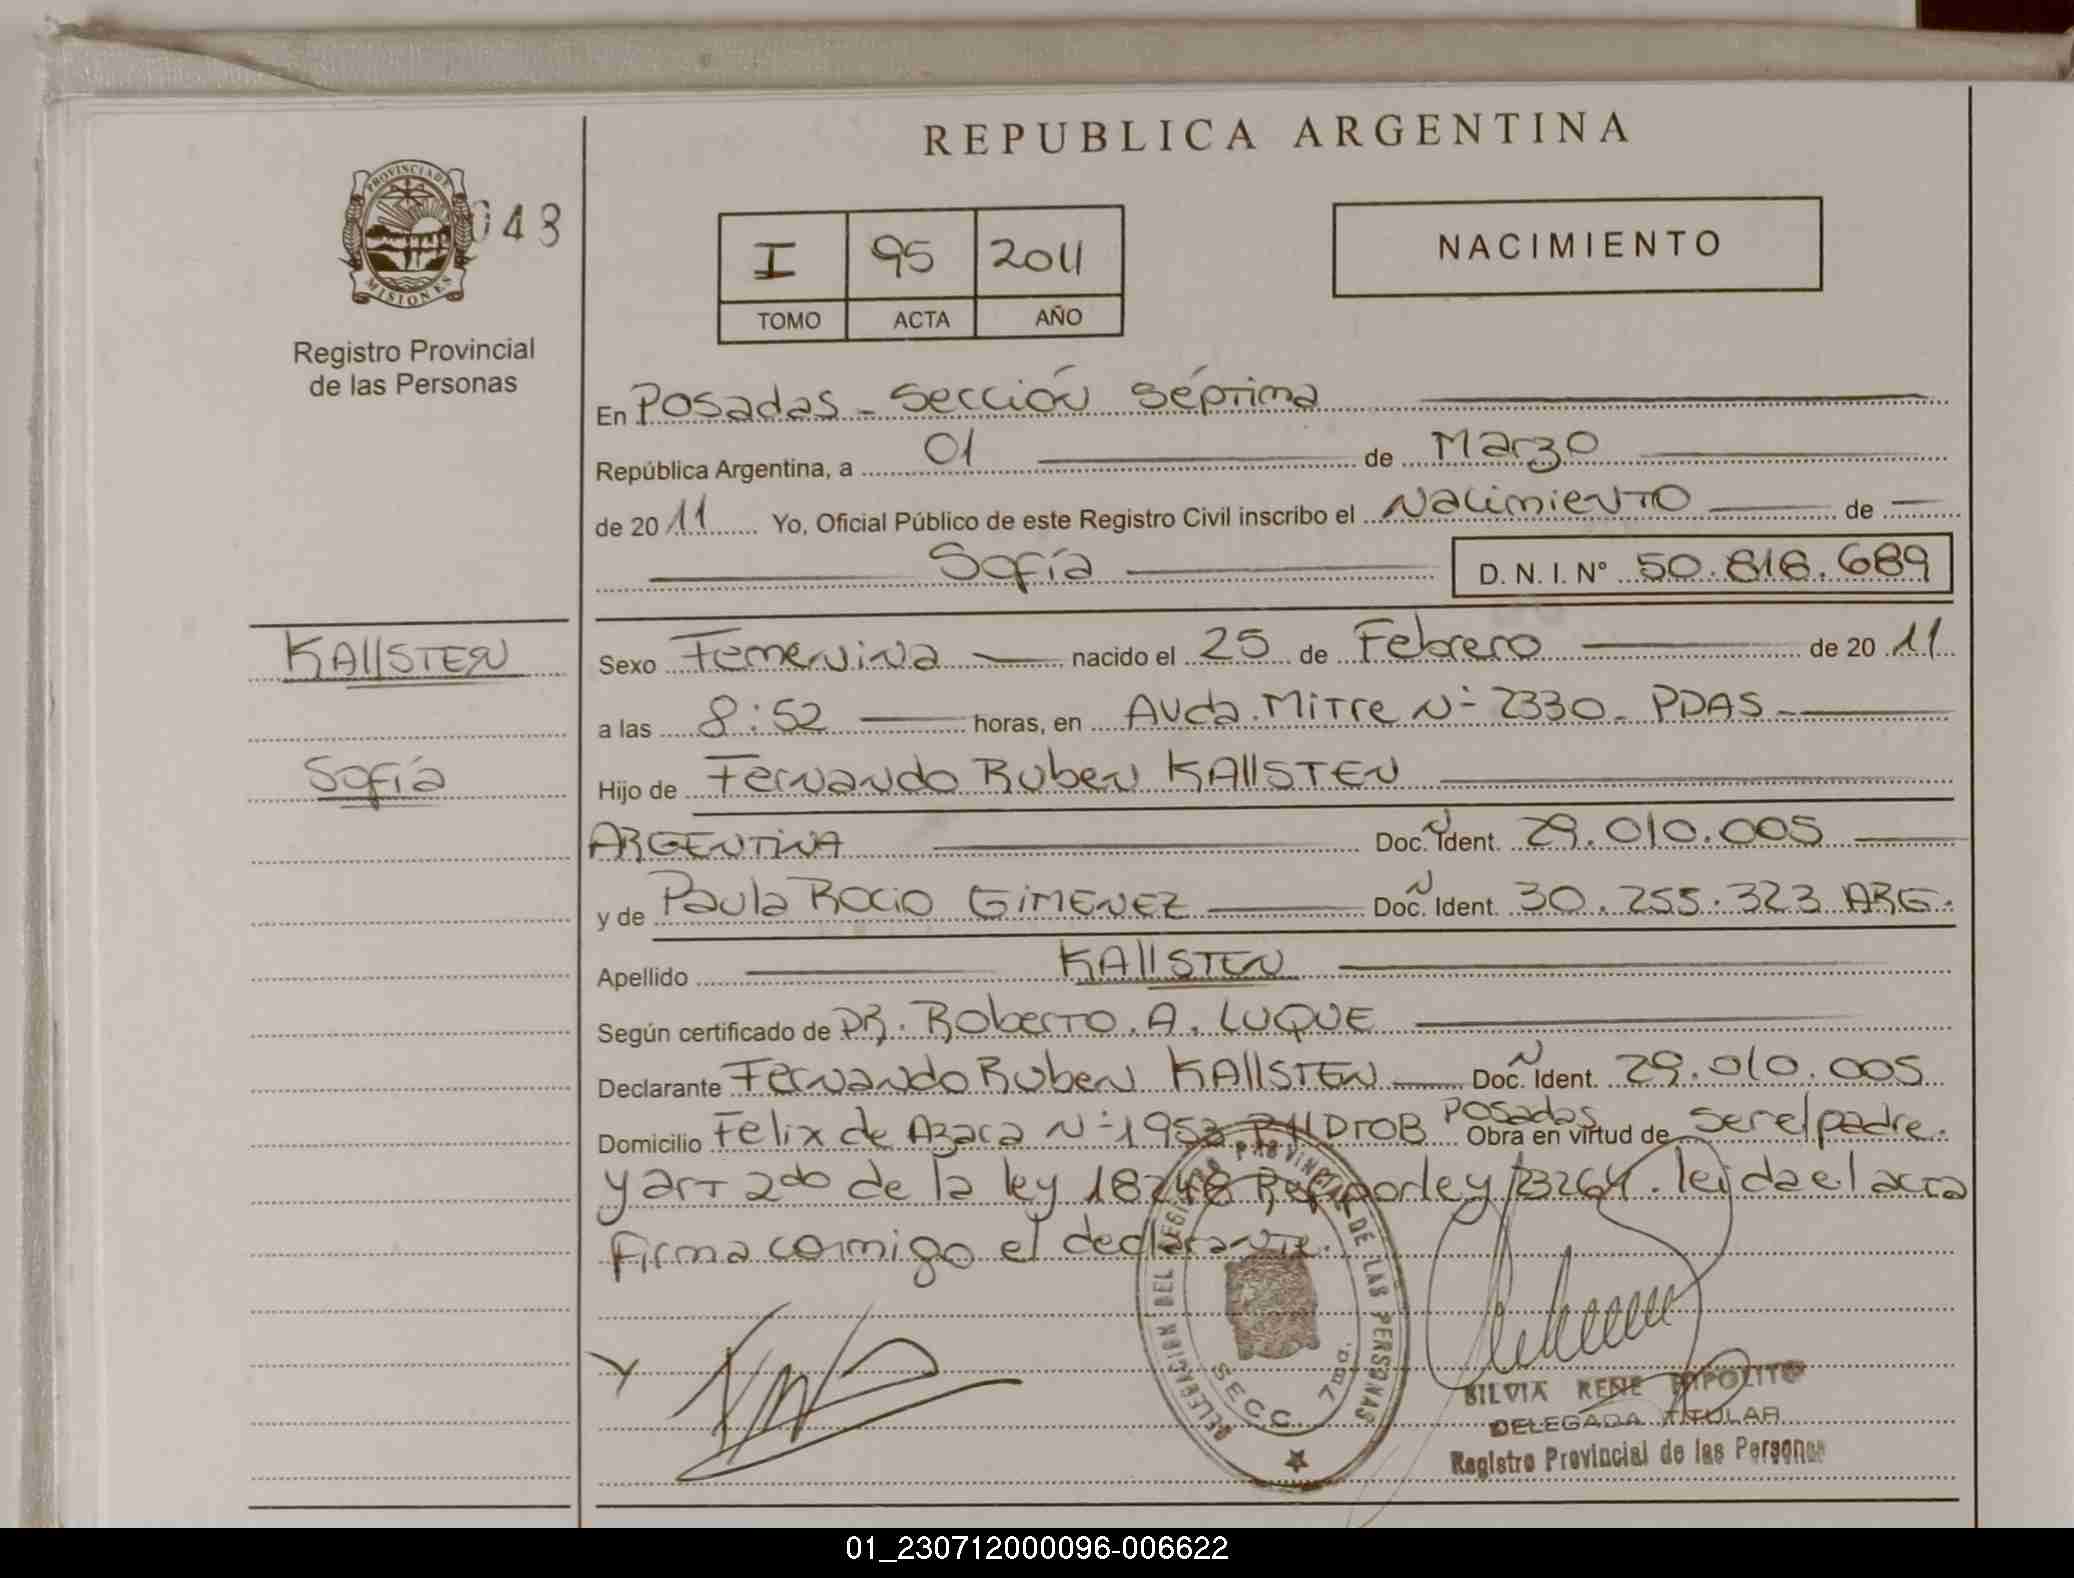 REPUBLICA ARGENTINA
PROVINCIA DE MISIONES
043
I 95 2011
TOMO ACTA AÑO
NACIMIENTO
Registro Provincial
de las Personas
En Posadas - Sección Séptima
República Argentina, a 01 de Marzo
de 2011 Yo, Oficial Público de este Registro Civil inscribo el Nacimiento de
Sofía D. N. I. N° 50.818.689
KAllSTEN
Sexo Femenina nacido el 25 de Febrero de 2011
a las 8:52 horas, en Avda. Mitre N° 2330. PDAS
Sofía
Hijo de Fernando Ruben KAllSTEN
ARGENTINA Doc. Ident. 29.010.005
y de Paula Rocio GIMENEZ Doc. Ident. 30.255.323 ARG.
Apellido KAllSTEN
Según certificado de DR. Roberto. A. LUQUE
Declarante Fernando Ruben KAllSTEN Doc. Ident. 29.010.005
Domicilio Felix de Azara N° 1953 DTOB Posadas Obra en virtud de ser el padre.
y art 2do de la ley 18248 Ref por ley 23264. leida el acta
firma conmigo el declarante.
DELEGACION DEL REGISTRO PROVINCIAL DE LAS PERSONAS
SECC. 7ma.
SILVIA RENE HIPOLITO
DELEGADA TITULAR
Registro Provincial de las Personas
01_230712000096-006622